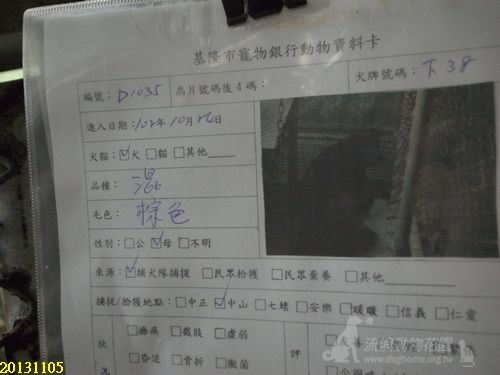 基隆市寵物銀行動物資料卡
編號：D1035 晶片號碼後4碼： 犬牌號碼：下38
進入日期：102年10月26日
犬貓：☑犬 □貓 □其他
品種：混
毛色：棕色
性別：□公 ☑母 □不明
來源：☑捕犬隊捕捉 □民眾拾獲 □民眾棄養 □其他
捕捉/拾獲地點：□中正 ☑中山 □七堵 □安樂 □暖暖 □信義 □仁愛
狀 □癱瘓 □截肢 □虛弱 評 □友善
況 □昏迷 □骨折 □黴菌
流浪動物花園
www.doghome.org.tw
20131105